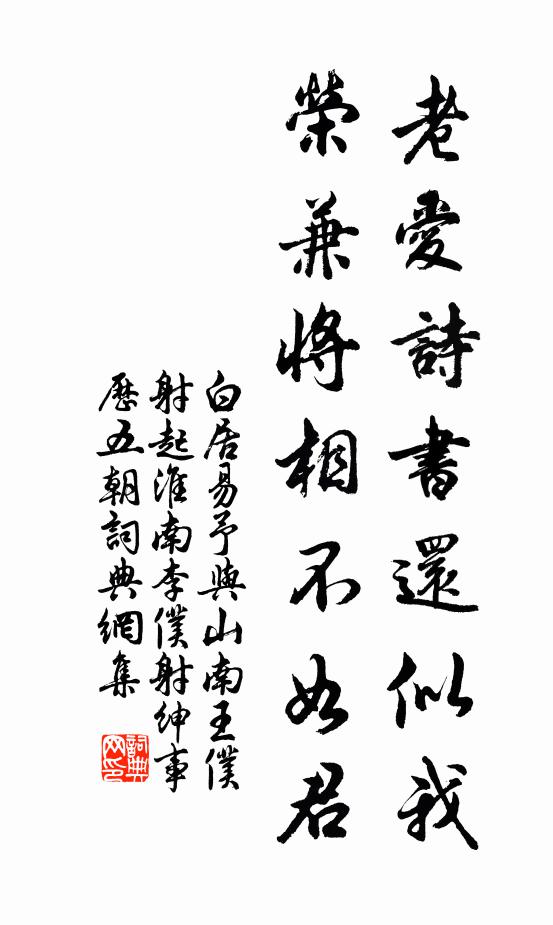 老愛詩書還似我
榮兼將相不如君
白居易予與山南王僕
射起淮南李僕射紳事
歷五朝詞典網集
詞典
网印